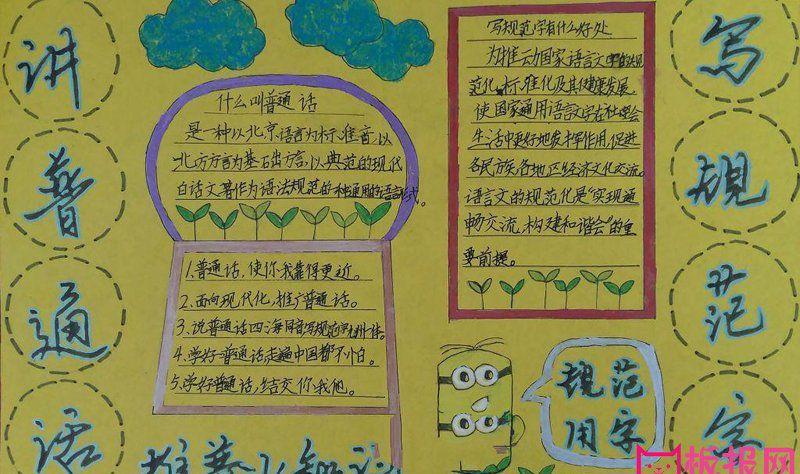 讲
普
通
话
什么叫普通话
是一种以北京语言为标准音,以
北方方言为基础方言,以典范的现代
白话文著作为语法规范的一种通用的语言
1.普通话,使你我靠得更近。
2.面向现代化,推广普通话。
3.说普通话四海同音写规范字
4.学好普通话走遍中国都不怕。
5.学好普通话,结交你我他。
写规范字有什么好处
为推动国家语言文字的规
范化,标准化及其健康发展
使国家通用语言文字在社会
生活中更好地发挥作用,促进
各民族各地区经济文化交流。
语言文的规范化是"实现通
畅交流,构建和谐会"的重
要前提。
规范
用字
写
规
范
字
板报网